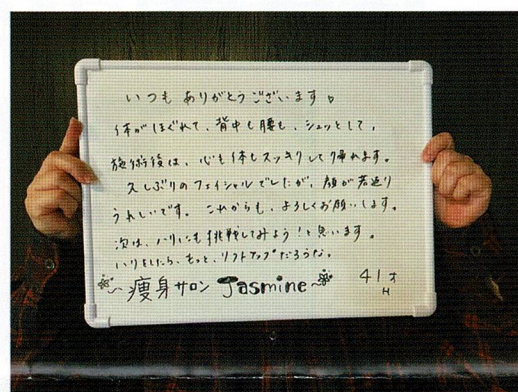 いつも ありがとうございます。
体がほぐれて、背中も腰も、シュッとして、
施術後は、心も体もスッキリして帰れます。
久しぶりのフェイシャルでしたが、顔が若返り
うれしいです。これからも、よろしくお願いします。
次は、ハリにも挑戦してみよう！と思います。
ハリをしたら、もっと、リフトアップだろうな。
痩身サロン Jasmine
41才
H